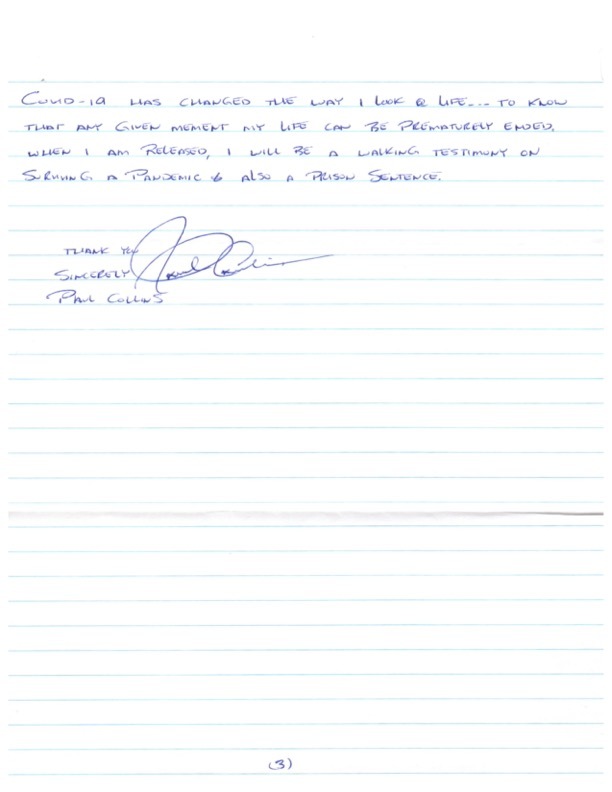 COVID-19 HAS CHANGED THE WAY I LOOK @ LIFE... TO KNOW
THAT ANY GIVEN MEMENT MY LIFE CAN BE PREMATURELY ENDED.
WHEN I AM RELEASED, I WILL BE A WALKING TESTIMONY ON
SURVIVING A PANDEMIC & ALSO A PRISON SENTENCE.
THANK YOU
SINCERELY
PAUL COLLINS
(3)